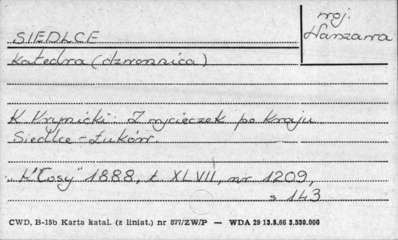 SIEDLCE
woj.
Warszawa
Katedra (dzwonnica)
K. Krynicki: Z wycieczek po kraju
Siedlce-Łuków.
"Kłosy" 1888, t XLVII, nr 1209,
s 143
CWD, B-15b Karta katal. (z liniat.) nr 877/ZW/P — WDA 29 13.8.66 3,530.000